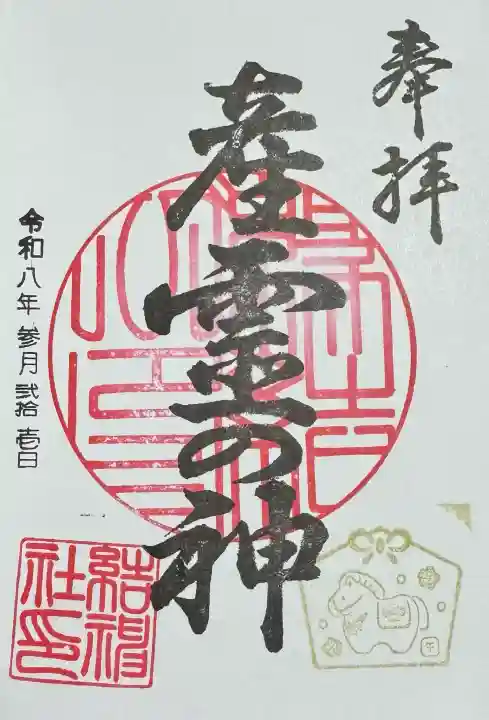 奉拝
産霊の神
令和八年 参月 弐拾 壱日
結神
社印
午